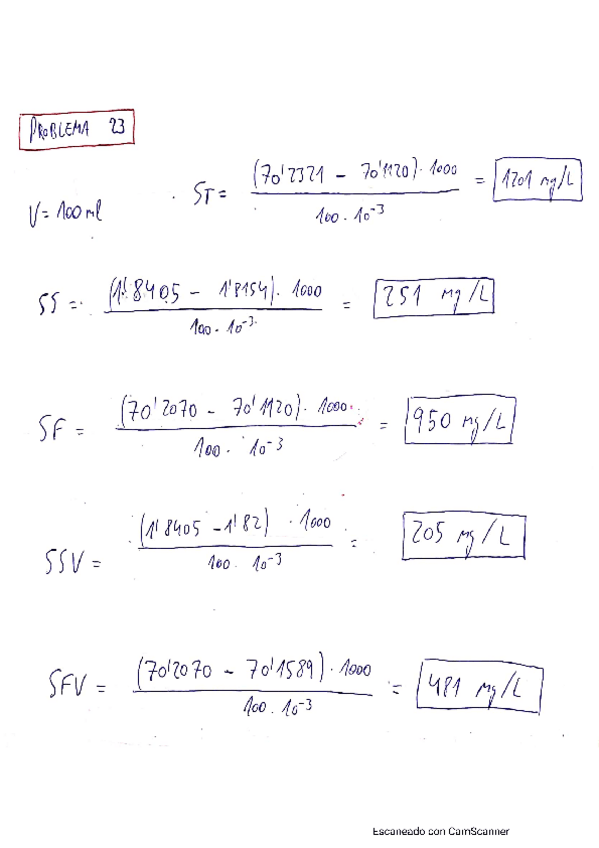 PROBLEMA 23
V = 100 ml
ST = (70'2321 - 70'1120) · 1000 / 100 · 10^-3 = 1201 mg/L
SS = (1'8405 - 1'8154) · 1000 / 100 · 10^-3 = 251 mg/L
SF = (70'2070 - 70'1120) · 1000 / 100 · 10^-3 = 950 mg/L
SSV = (1'8405 - 1'82) · 1000 / 100 · 10^-3 = 205 mg/L
SFV = (70'2070 - 70'1589) · 1000 / 100 · 10^-3 = 481 mg/L
Escaneado con CamScanner